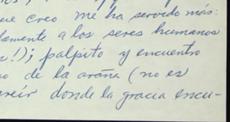 ue creo me ha servido más:
lamente a los seres humanos
!); palpito y encuentro
o de la araña (no es
reír donde la gracia encu-